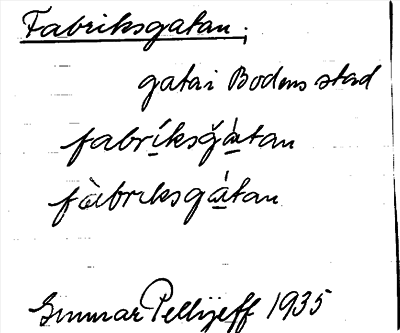 Fabriksgatan.
gata i Bodens stad
fabríksgàtan
fàbriksgátan
Gunnar Pellijeff 1935